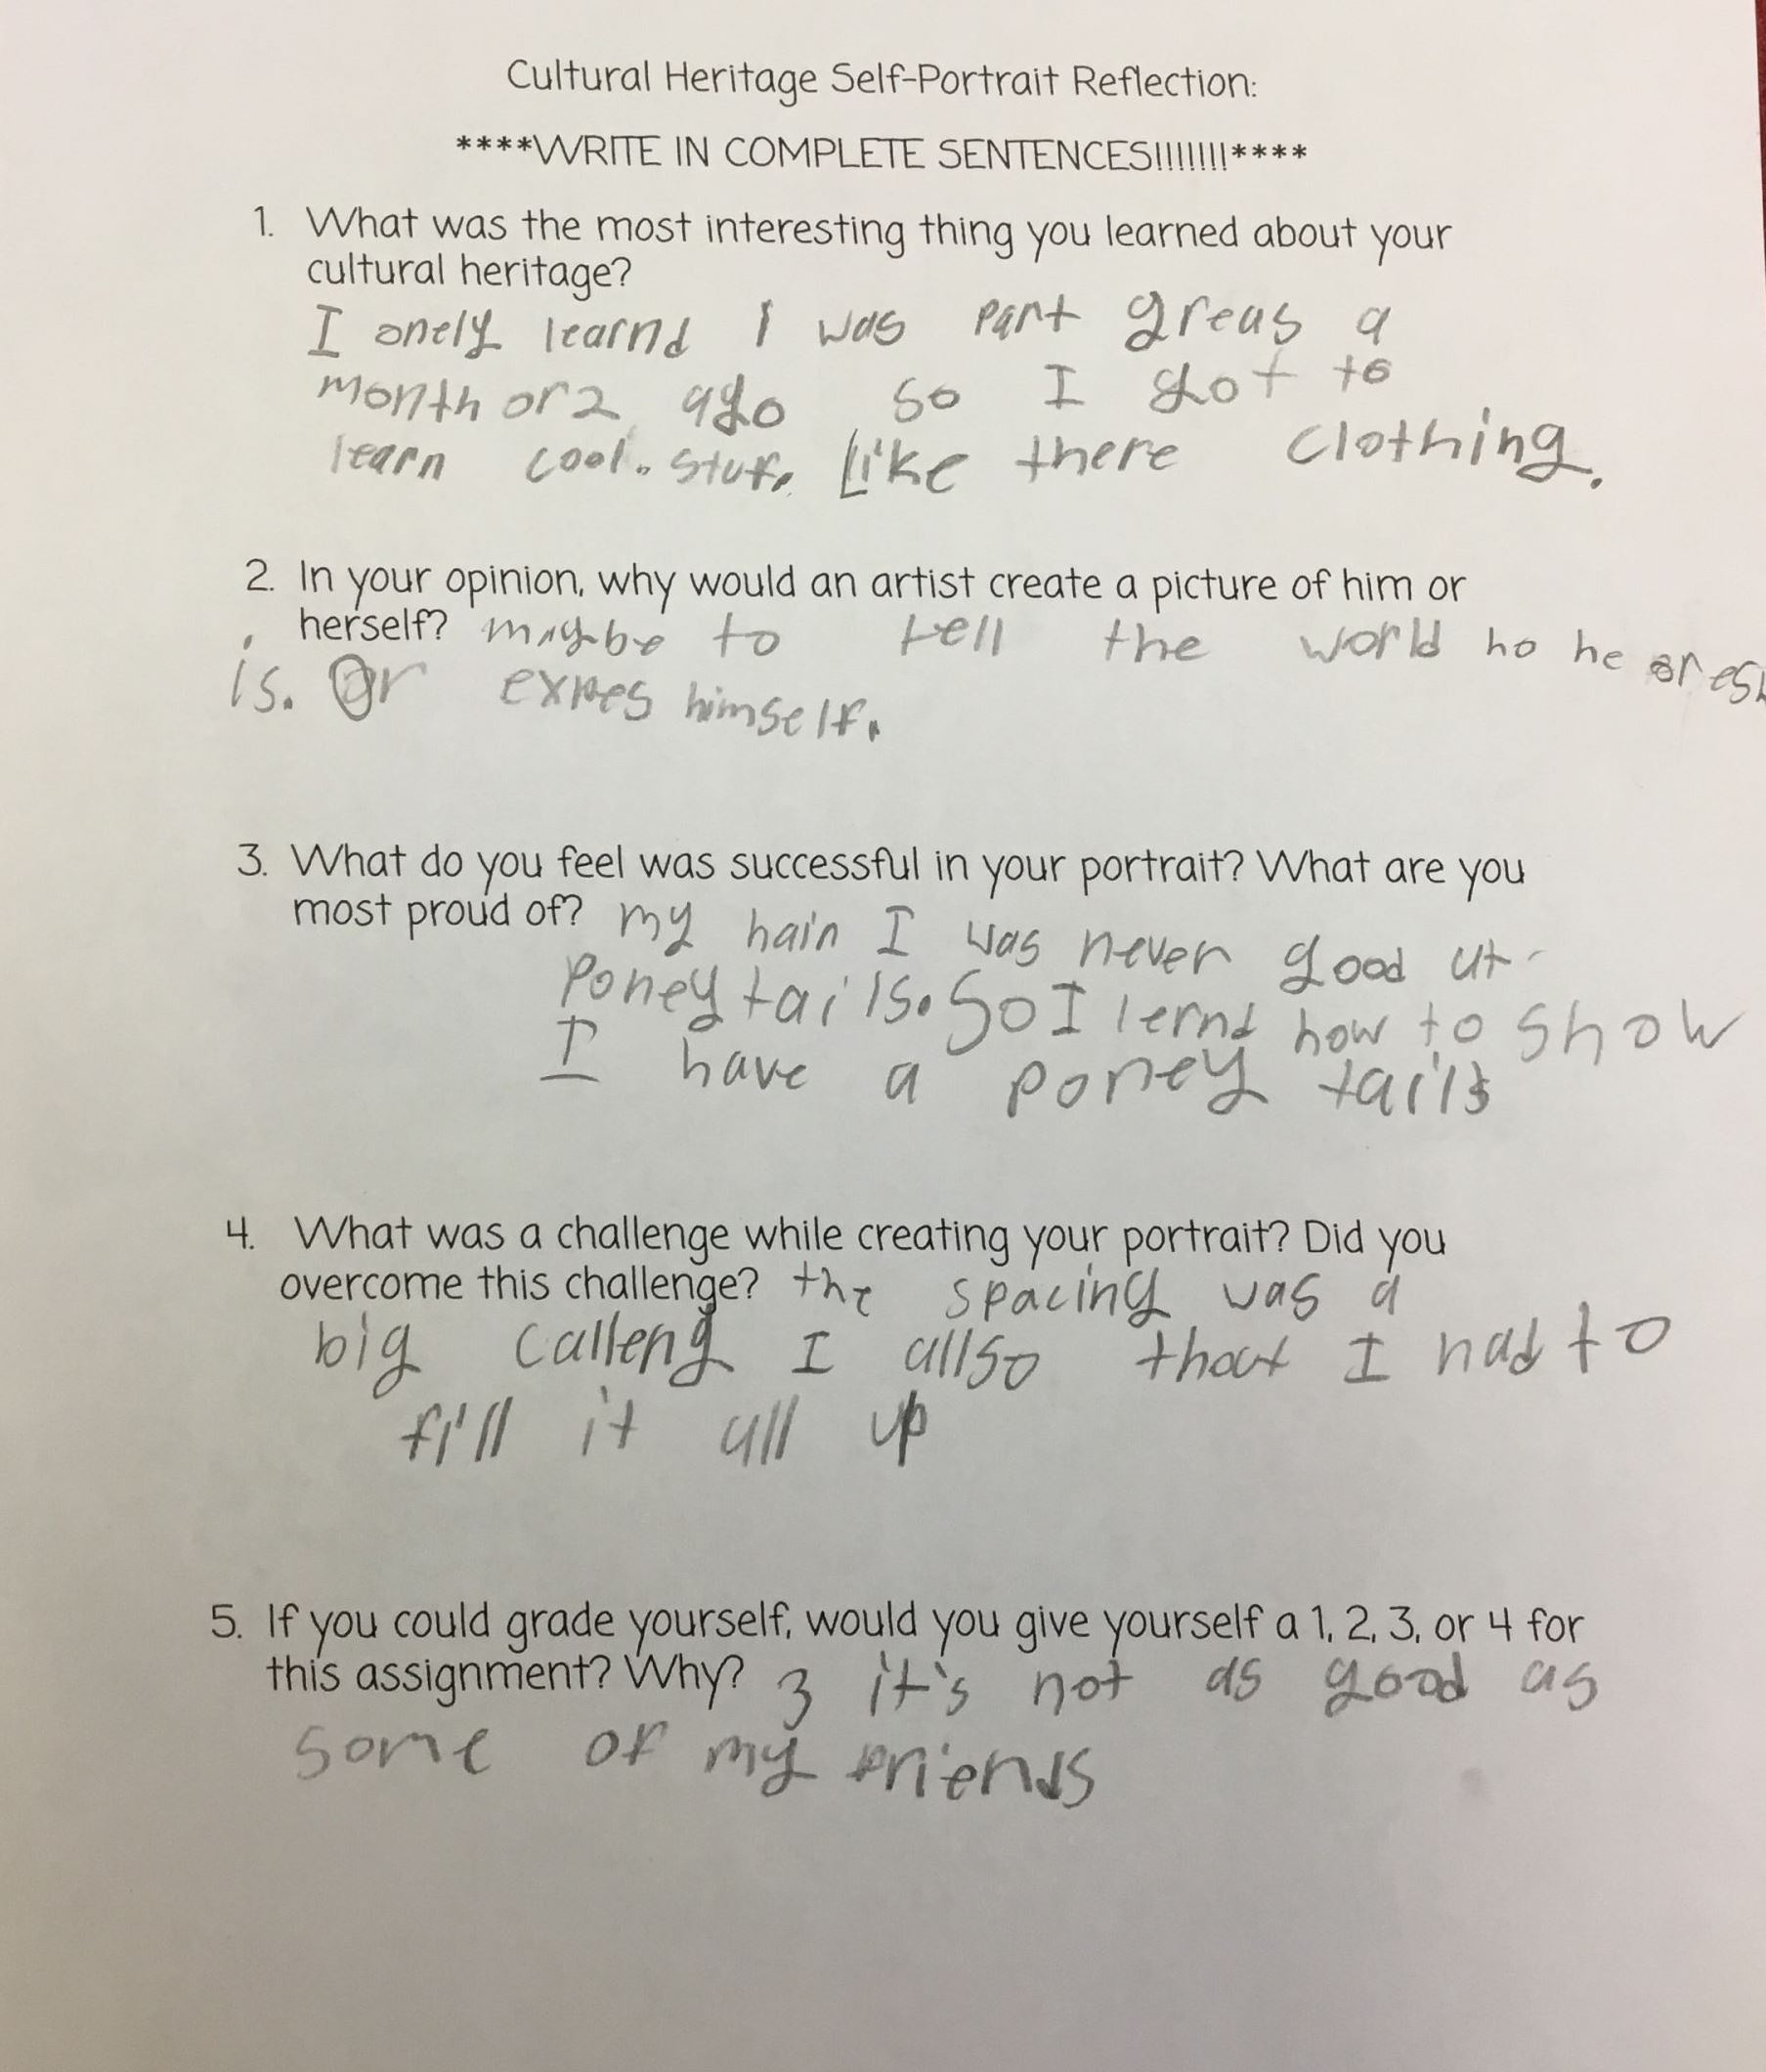 Cultural Heritage Self-Portrait Reflection:
****WRITE IN COMPLETE SENTENCES!!!!!!!!****
1. What was the most interesting thing you learned about your
cultural heritage?
I onely learnd I was part greas a
month or 2 ago so I got to
learn cool. stuf. Like there clothing.
2. In your opinion, why would an artist create a picture of him or
herself? maybe to tell the world ho he or esh
is. Or expes himself.
3. What do you feel was successful in your portrait? What are you
most proud of? my hair I was never good at
Poney tails. So I lernd how to show
I have a poney tails
4. What was a challenge while creating your portrait? Did you
overcome this challenge? the spacing was a
big calleng I allso thout I had to
fill it all up
5. If you could grade yourself, would you give yourself a 1, 2, 3, or 4 for
this assignment? Why? 3 it's not as good as
some of my friends